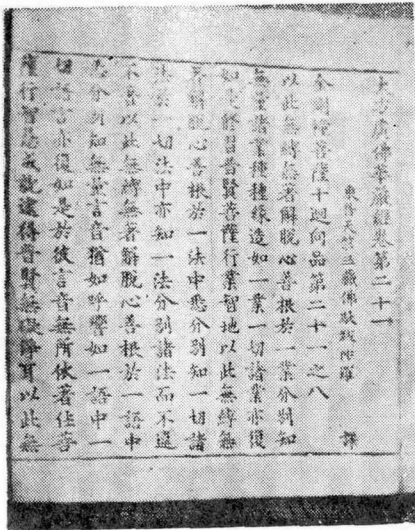 大方廣佛華嚴經卷第二十一
東晉天竺三藏佛馱跋陀羅 譯
金剛幢菩薩十迴向品第二十一之八
以此無縛無著解脫心善根於一業分別知
無量諸業種種緣造如一業一切諸業亦復
如是修習普賢菩薩行業智地以此無縛無
著解脫心善根於一法中悉分別知一切諸
法於一切法中亦知一法分別諸法而不違
不著以此無縛無著解脫心善根於一語中
悉分別知無量言音猶如呼響如一語中一
切語言亦復如是於彼言音無所依著住菩
薩行智慧成就逮得普賢無礙淨耳以此無